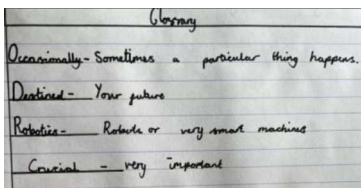 Glossary
Occasionally - Sometimes a particular thing happens.
Destined - Your future
Robotics - Robots or very smart machines
Crucial - very important